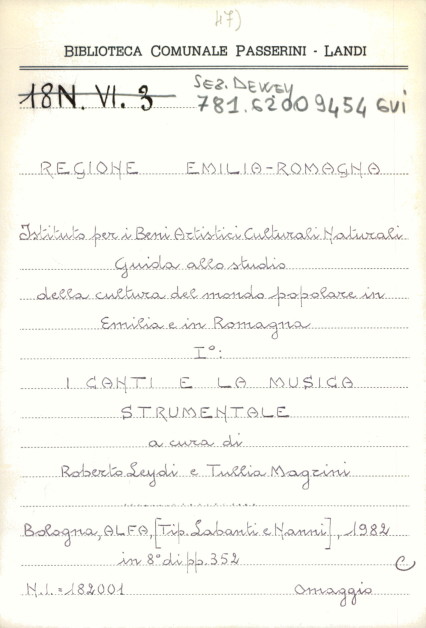 47)
BIBLIOTECA COMUNALE PASSERINI - LANDI
18N. VI. 3
SEZ. DEWEY
781.62009454 GUI
REGIONE EMILIA-ROMAGNA
Istituto per i Beni Artistici Culturali Naturali
Guida allo studio
della cultura del mondo popolare in
Emilia e in Romagna
I°:
I CANTI E LA MUSICA
STRUMENTALE
a cura di
Roberto Leydi e Tullia Magrini
Bologna, ALFA, [Tip. Labanti e Nanni], 1982
in 8° di pp. 352
C
N.I. = 182001 Omaggio